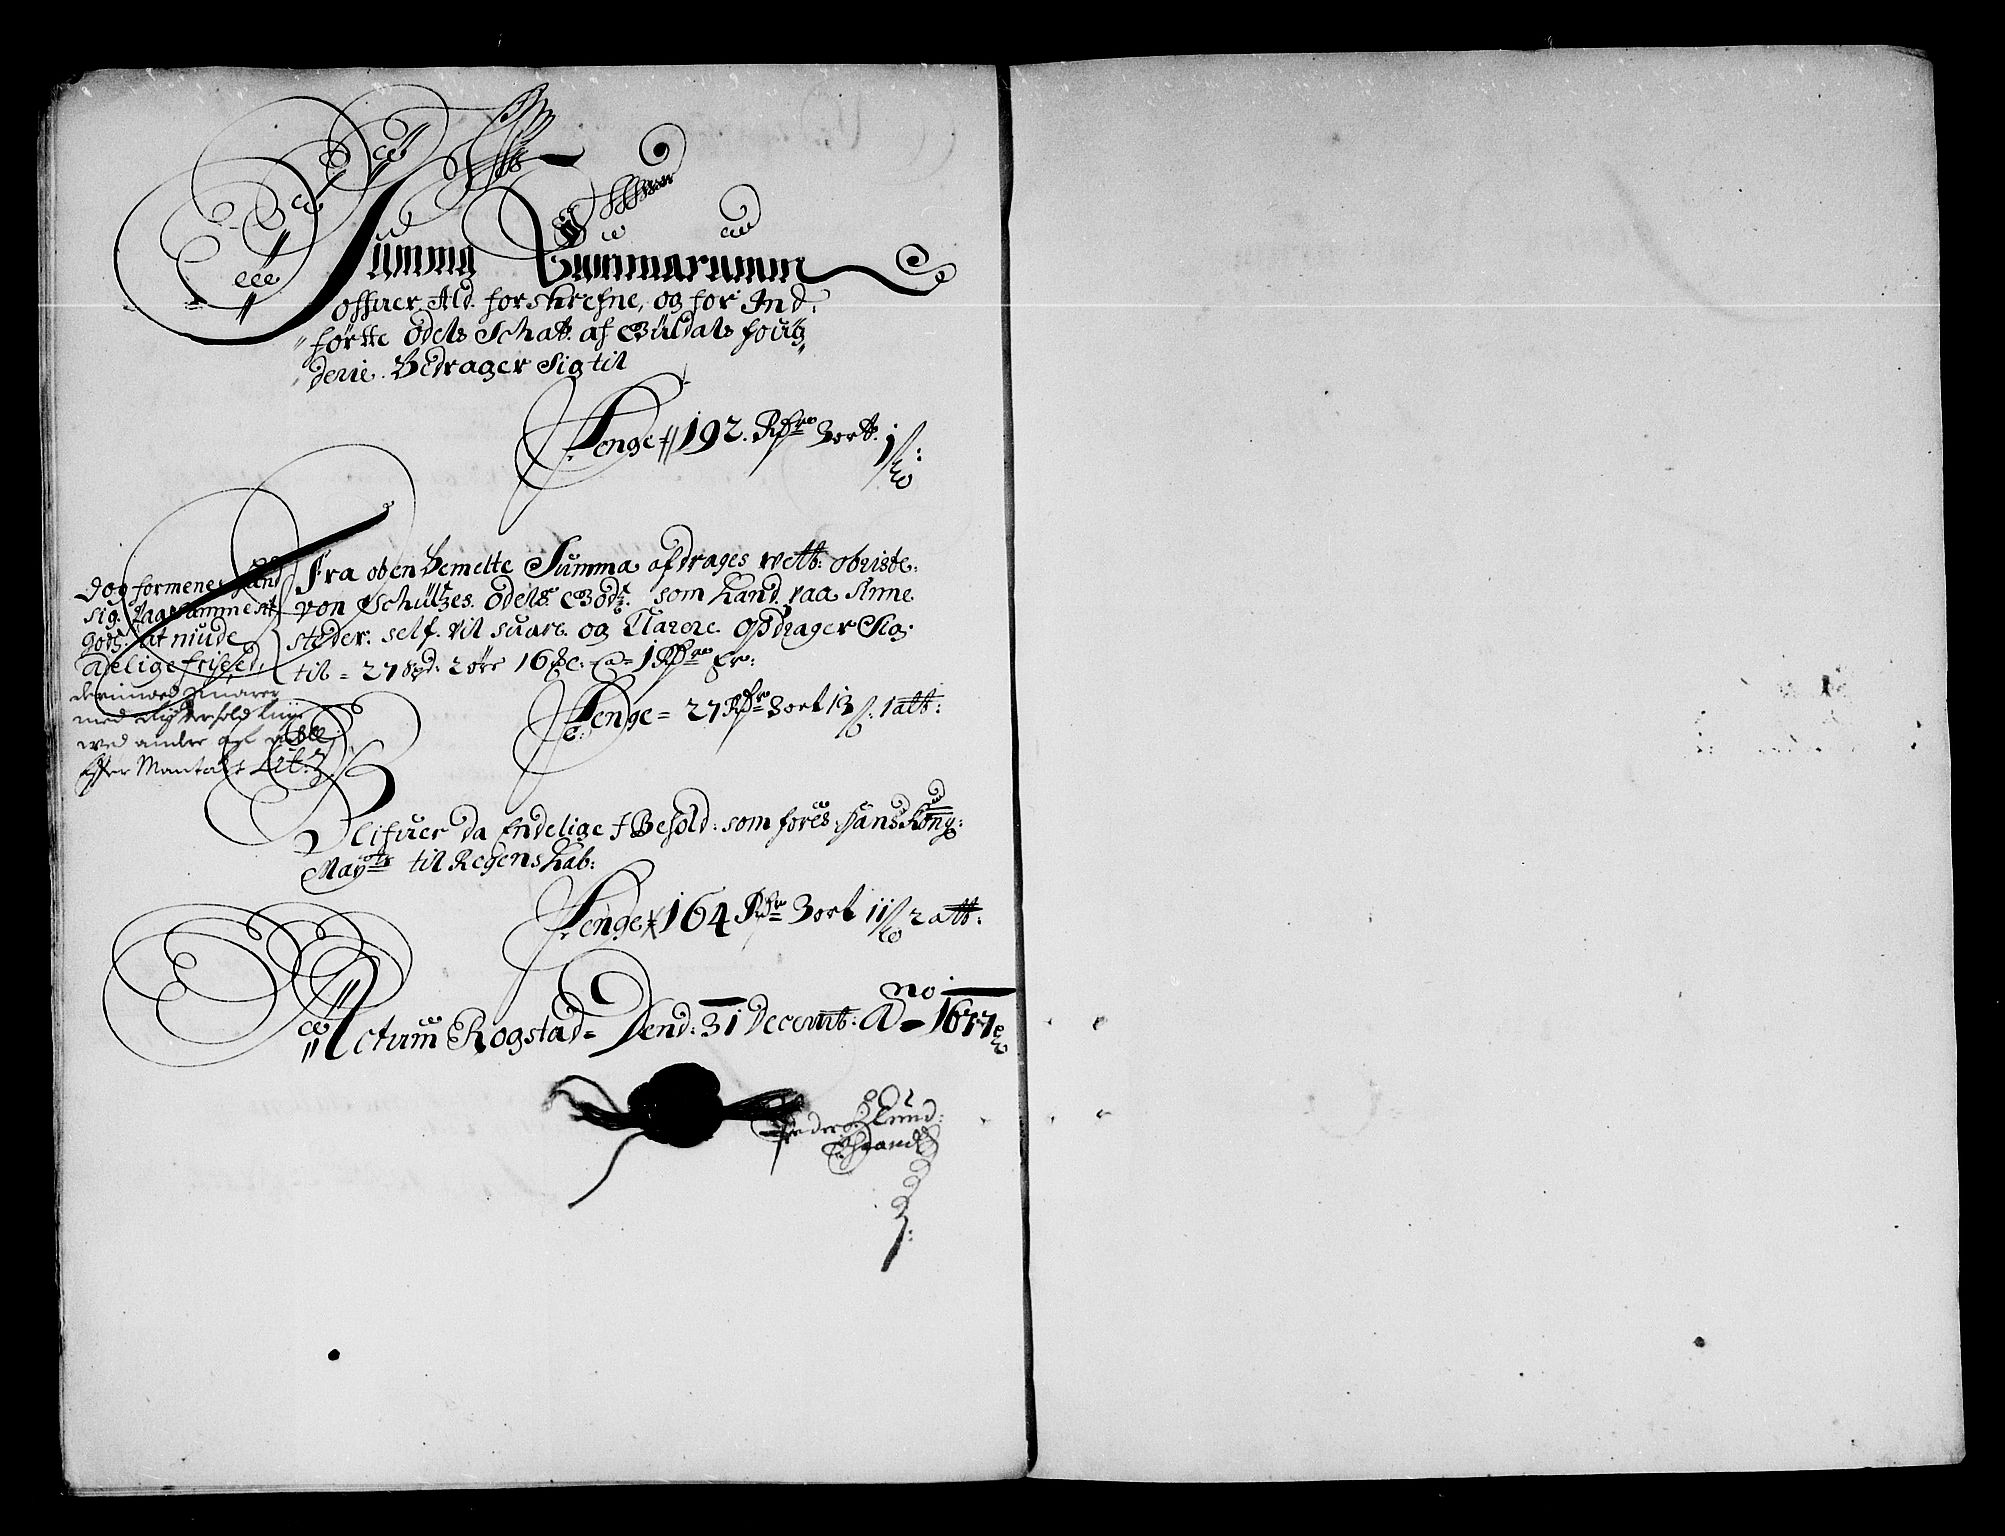 Summa Summarum
offuer Ald forskrefne, og for Ind,,
,,førtte Odels Schatt af Guldals foug,,
,,derie. Bedrager Sig til
Penge 192. Rdr 3 ort. 1 s:
Fra oben bemelte Summa afdrages velb: obriste:
von Schültzes. Odels Godz. som hand paa Anne
steder. self. vil suare. og Clarere. opdrager Sig
til = 27 spd: 2 øre 16 = 1 Rdr Er:
Penge = 27 Rdr 3 ort 13 s: 1 alb:
Dog formener hand
sig. Paa samme sit
godz. at niude
Adelige frihed,
med
wed andre af
Effter Mantals Lit: 3.
Blifuer da Endelige Behold: som føres. Hans Kong:
Mayts til Regenskab:
Penge 164 Rdr 3 ort 11 s 2 alb:
Actum Rogstad = Dend: 31 Decemb: Ano 1677
Peder